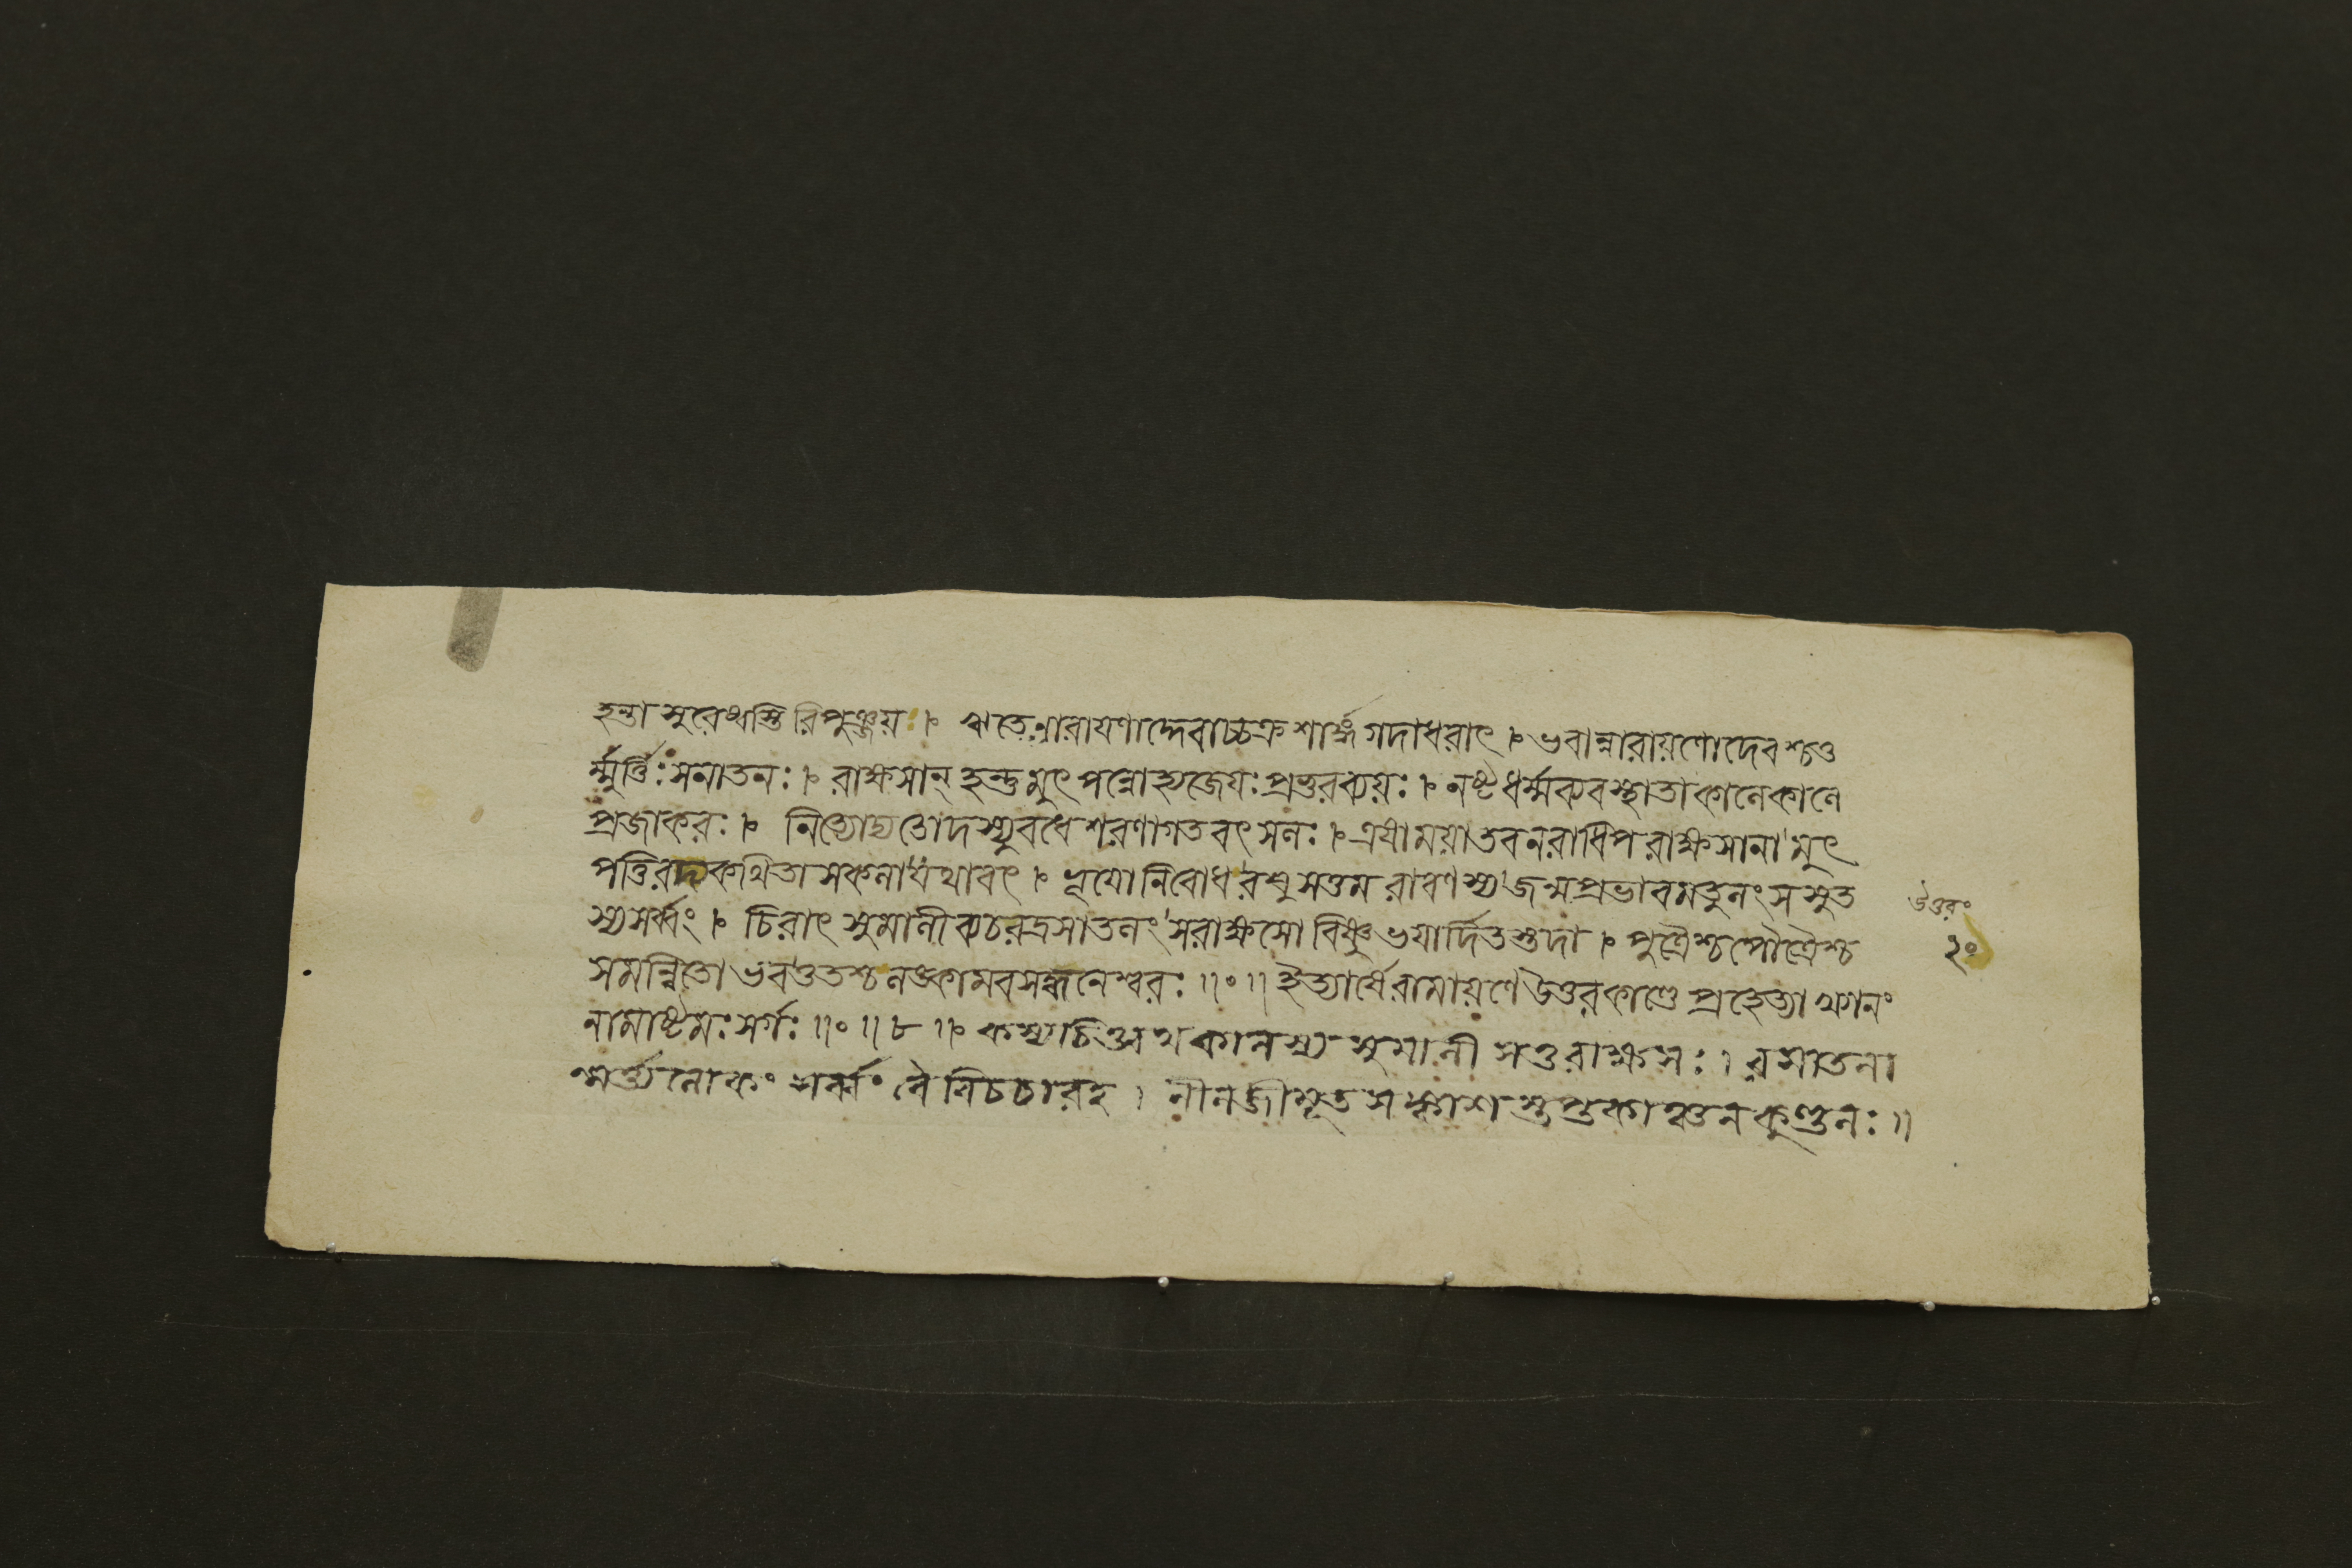 হন্তা সুরেষ্বস্তি রিপুঞ্জয়ঃ । ঋতে নারায়ণাদ্দেবাচ্চক্রশার্ঙ্গগদাধরাৎ । ভবান্নারায়ণোদেবশ্চতু
র্ম্মূর্ত্তিঃ সনাতনঃ । রাক্ষসান্ হন্তুমুৎপন্নোহ্যজেয়ঃ প্রভুরব্যয়ঃ । নষ্টধর্ম্মব্যবস্থাতা কালেকালে
প্রজাকরঃ । নিত্যোদ্যতোদস্যুবধে শরণাগতবৎসলঃ । এষাময়াতবনরাধিপ রাক্ষসানামুৎ
পত্তিরদ্যকথিতা সকলাযথাবৎ । ভূয়োনিবোধরঘুসত্তম রাবণস্যজন্মপ্রভাবমতুলং সসুত
স্যসর্ব্বং । চিরাৎ সুমালীব্যচরদ্রসাতলং সরাক্ষসো বিষ্ণুভয়ার্দিতস্তদা । পুত্রৈশ্চপৌত্রৈশ্চ
সমন্বিতো ভবত্ততশ্চ লঙ্কামবসদ্ধনেশ্বরঃ ॥০॥ ইত্যার্ষেরামায়ণে উত্তরকাণ্ডে প্রহেত্যাখ্যানং
নামাষ্টমঃ সর্গঃ ॥০॥ ৮ ॥ কস্যচিত্ত্বথকালস্য সুমালী সতুরাক্ষসঃ । রসাতলা
ন্মর্ত্ত্যলোকং সর্ব্বং বৈ বিচচারহ । নীলজীমূতসঙ্কাশস্তপ্তকাঞ্চনকুণ্ডলঃ ॥
উত্তরং
২০